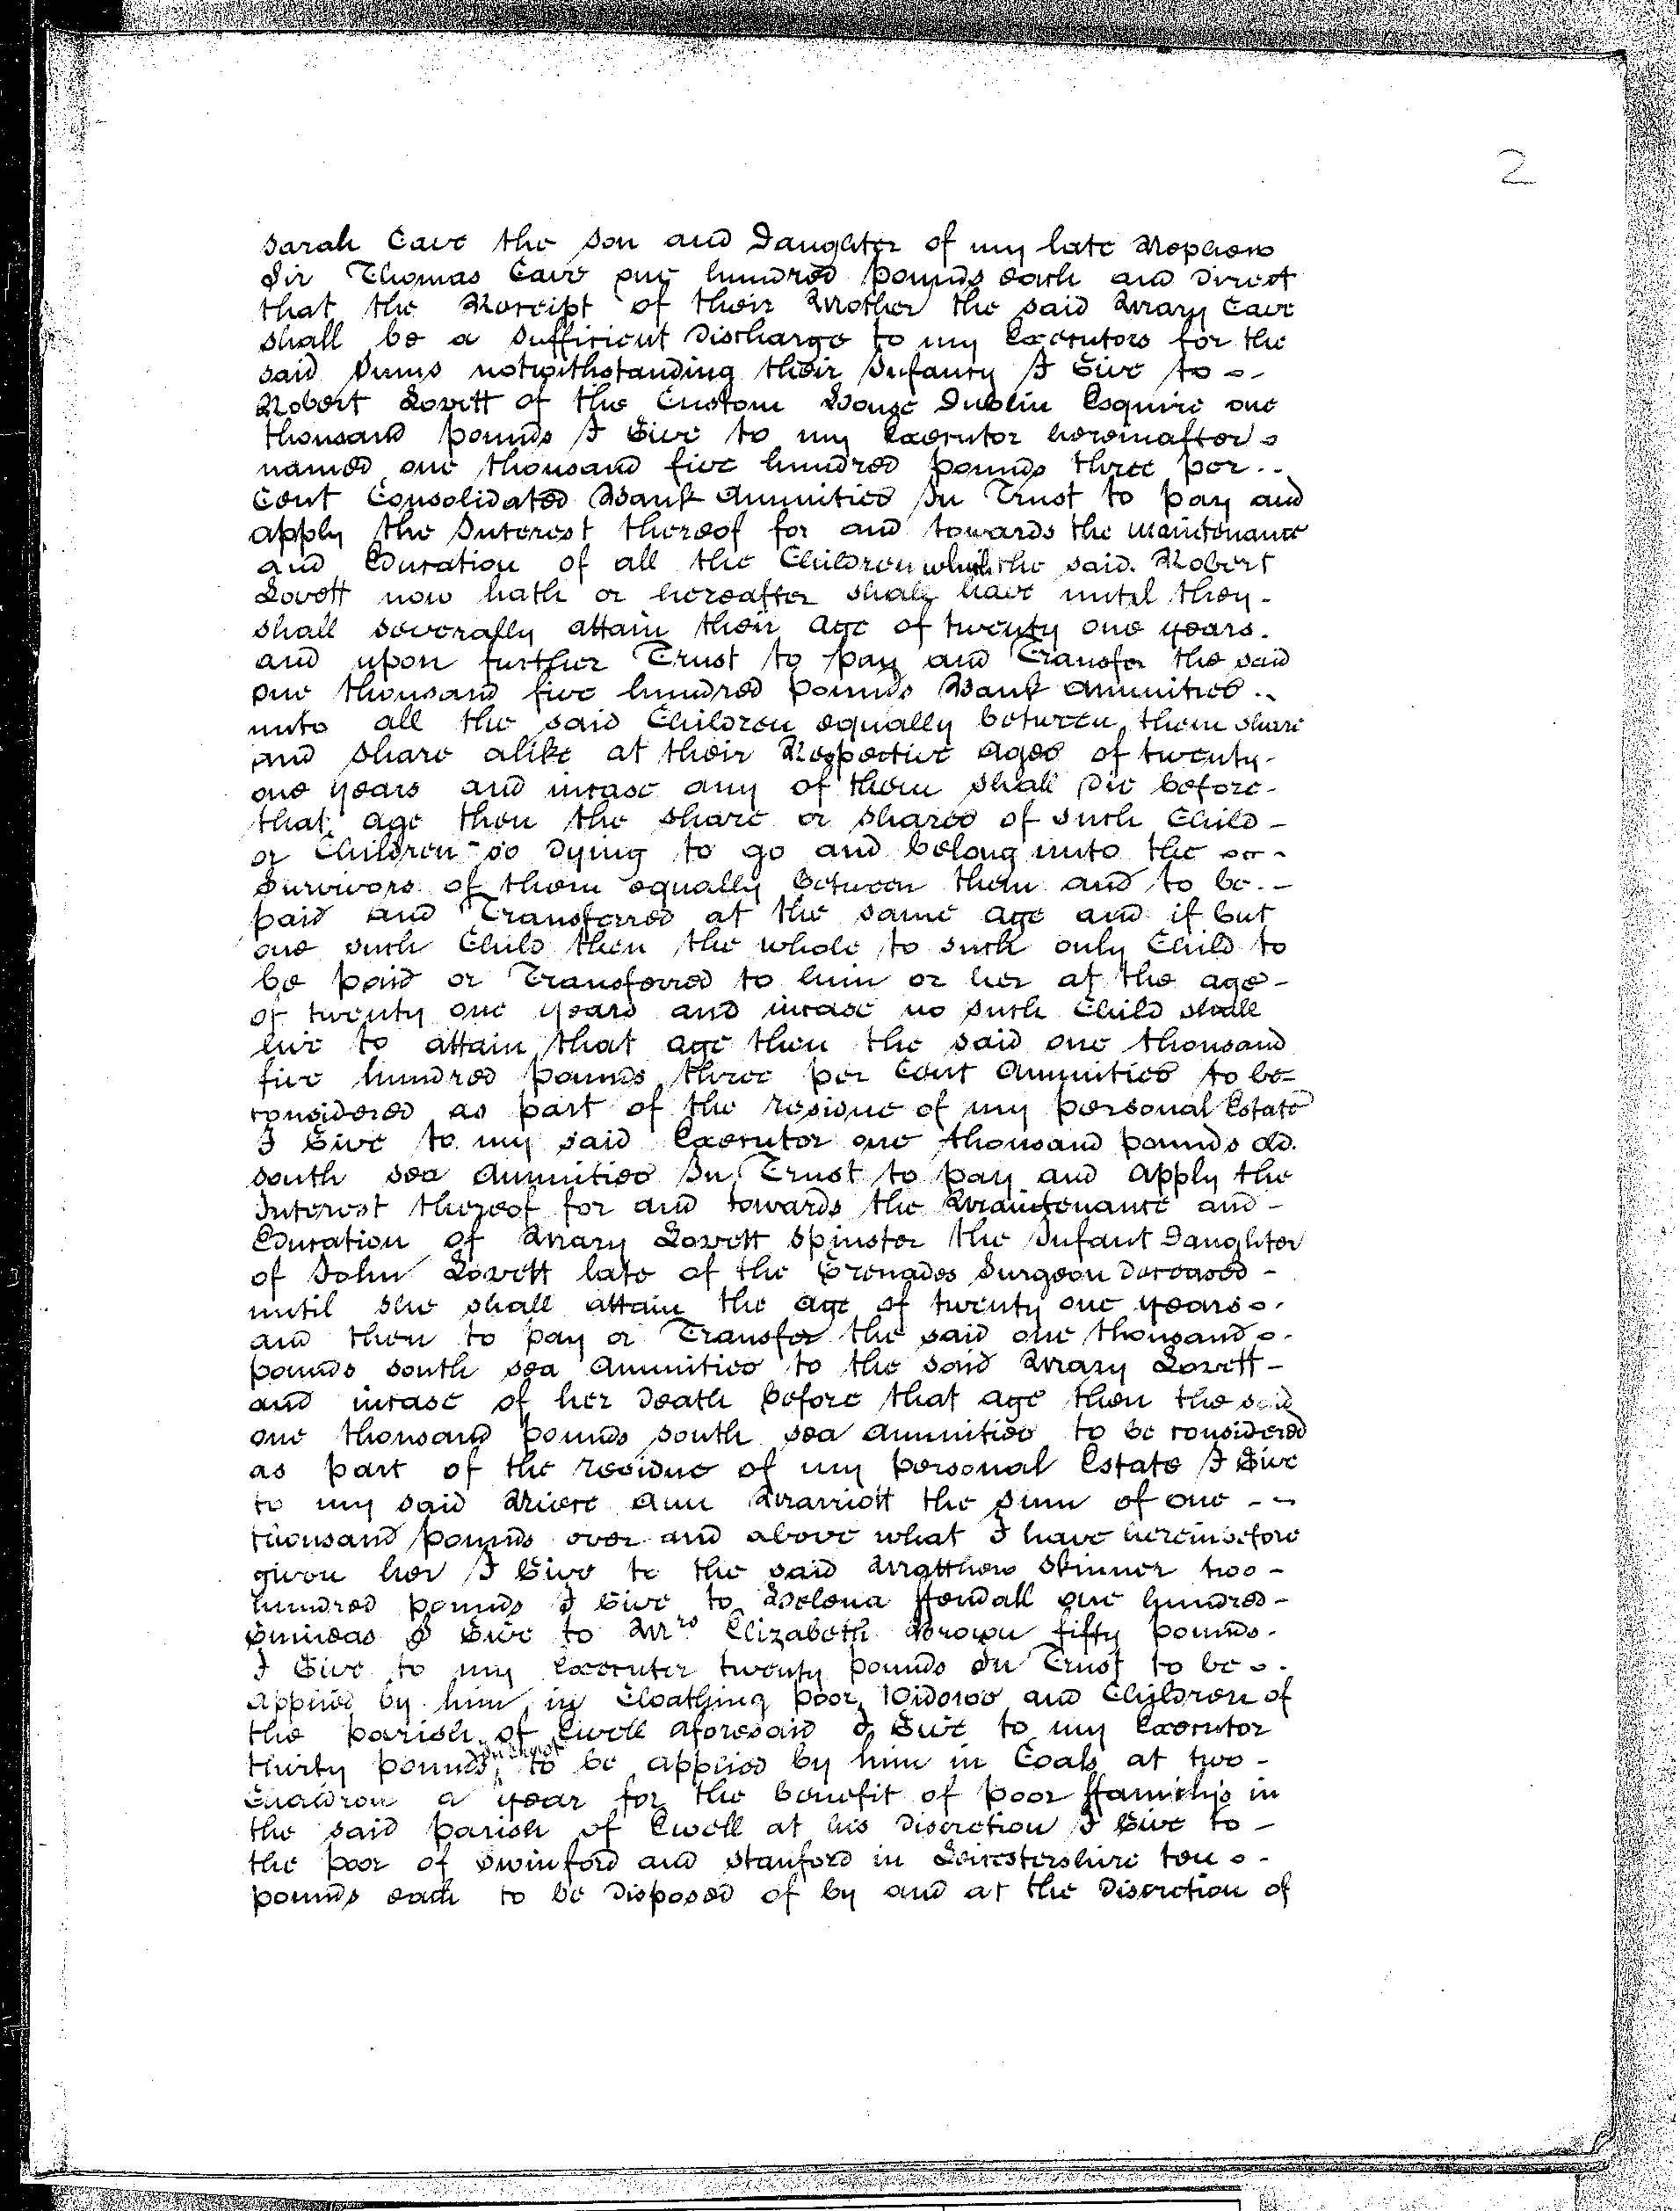 2
Sarah Cave the son and Daughter of my late Nephew
Sir Thomas Cave one hundred pounds each and direct
that the Receipt of their Mother the said Mary Cave
shall be a sufficient Discharge to my Executors for the
said Sums notwithstanding their Infancy I Give to -
Robert Lovett of the Custom House Dublin Esquire one
thousand pounds I Give to my Executor hereinafter -
named one thousand five hundred pounds three per ..
Cent Consolidated Bank Annuities In Trust to pay and
apply the Interest thereof for and towards the maintenance
and Education of all the Children which the said Robert
Lovett now hath or hereafter shall have until they -
shall severally attain their age of twenty one years.
and upon further Trust to pay and Transfer the said
one thousand five hundred pounds Bank Annuities ..
unto all the said Children equally between them share
and share alike at their Respective ages of twenty -
one years and incase any of them shall die before -
that age then the share or shares of such Child -
or Children so dying to go and belong unto the -
Survivors of them equally between them and to be. -
paid and Transferred at the same age and if but
one such Child then the whole to such only Child to
be paid or Transferred to him or her at the age -
of twenty one years and incase no such Child shall
live to attain that age then the said one thousand
five hundred pounds three per Cent Annuities to be =
considered as part of the residue of my personal Estate
I Give to my said Executor one thousand pounds old.
South Sea Annuities In Trust to pay and apply the
Interest thereof for and towards the Maintenance and -
Education of Mary Lovett Spinster the Infant Daughter
of John Lovett late of the Grenades Surgeon deceased -
until she shall attain the age of twenty one years -
and then to pay or Transfer the said one thousand -
pounds South Sea Annuities to the said Mary Lovett -
and incase of her death before that age then the said
one thousand pounds South Sea Annuities to be considered
as part of the residue of my personal Estate I Give
to my said Niece Ann Marriott the sum of one - -
thousand pounds over and above what I have hereinbefore
given her I Give to the said Matthew Skinner two -
hundred pounds I Give to Helena ffendall one hundred -
Guineas I Give to Mrs Elizabeth Brown fifty pounds.
I Give to my Executor twenty pounds In Trust to be -
applied by him in Cloathing poor Widows and Children of
the parish of Ewell aforesaid I Give to my Executor
thirty pounds In Trust to be applied by him in Coals at two -
Chaldron a year for the benefit of poor ffamilys in
the said parish of Ewell at his discretion I Give to -
the poor of Swinford and Stanford in Leicestershire ten -
pounds each to be disposed of by and at the discretion of